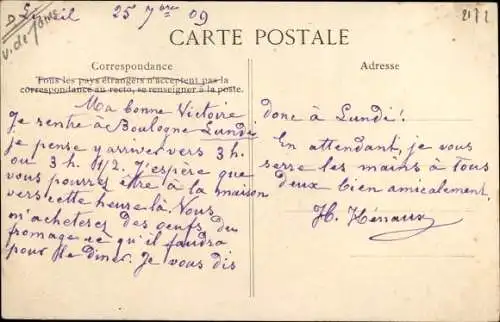 25 7bre 09
2172
V. de Joms
CARTE POSTALE
Correspondance
Tous les pays étrangers n'acceptent pas la
correspondance au recto, se renseigner à la poste.
Adresse
Ma bonne Victoire
Je rentre à Boulogne Lundi
je pense y arriver vers 3 h.
ou 3 h. 1/2. J'espère que
vous pourrez être à la maison
vers cette heure là. Vous
m'acheterez des oeufs du
fromage ce qu'il faudra
pour le diner. Je vous dis
donc à Lundi!
En attendant, je vous
serre les mains à tous
deux bien amicalement.
H. Hénaux